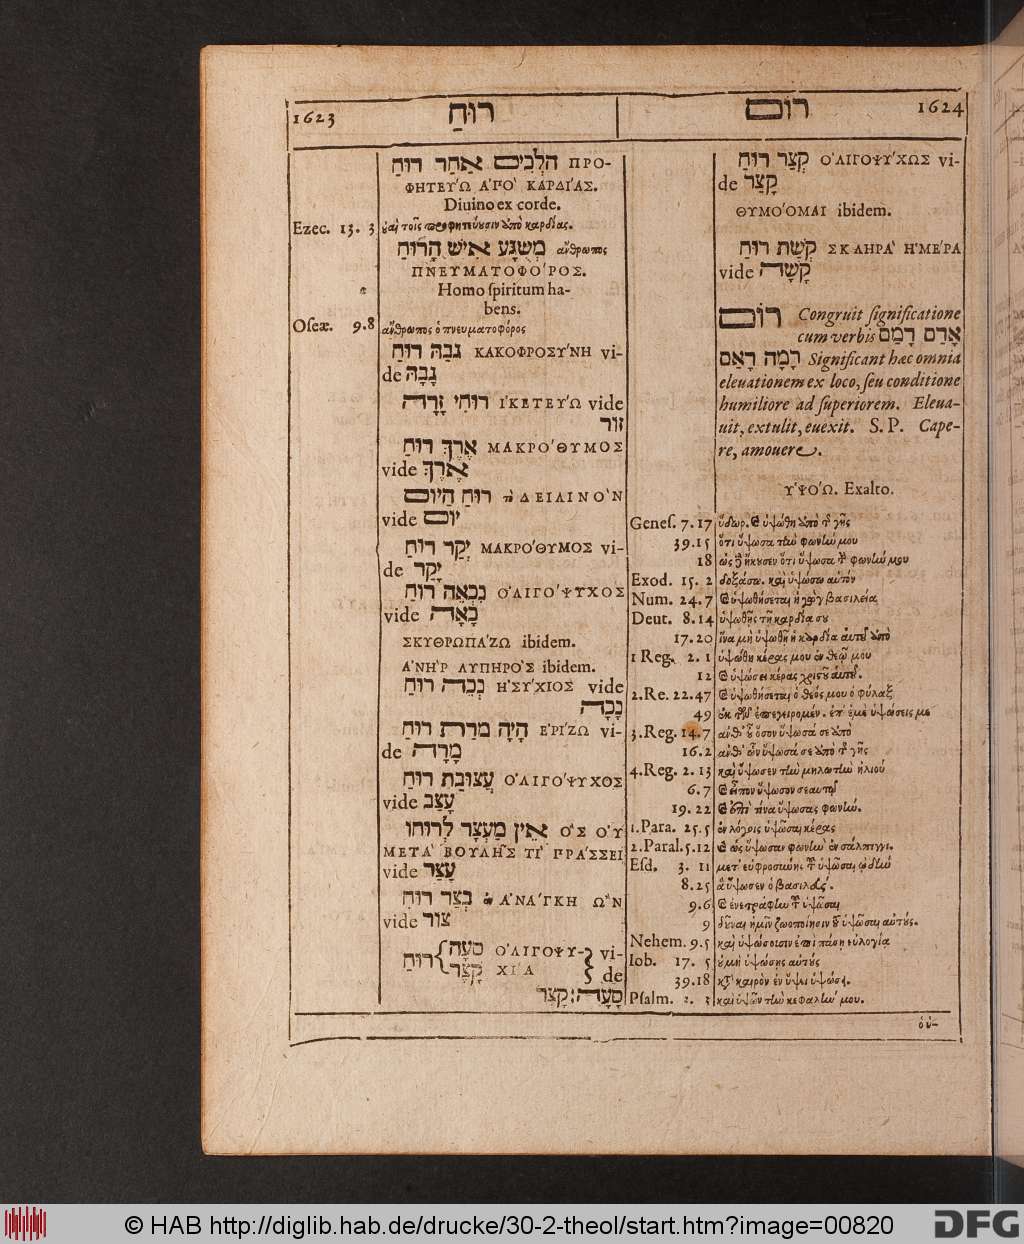 1623 רוּחַ
רוֹם 1624
הֹלְכִים אַחַר רוּחַ ΠΡΟ-
ΦΗΤΕΥΏ ἈΠῸ ΚΑΡΔΊΑΣ.
Diuino ex corde.
Ezec. 13. 3 καὶ τοῖς προφητεύουσιν ἀπὸ καρδίας.
מְשֻׁגָּע אִישׁ הָרוּחַ ἄνθρωπος
ΠΝΕΥΜΑΤΟΦΌΡΟΣ.
Homo ſpiritum ha-
bens.
Oſeæ. 9.8 ἄνθρωπος ὁ πνευματοφόρος
גֹּבַהּ רוּחַ ΚΑΚΟΦΡΟΣΎΝΗ vi-
de גָּבָהּ
רוּחִי זָרָה ἹΚΕΤΕΎΩ vide
זוּר
אֶרֶךְ רוּחַ ΜΑΚΡΌΘΥΜΟΣ
vide אֶרֶךְ
רוּחַ הַיּוֹם τὸ ΔΕΙΛΙΝῸΝ
vide יוֹם
יְקַר רוּחַ ΜΑΚΡΌΘΥΜΟΣ vi-
de יָקַר
נְכֵאָה רוּחַ ὈΛΙΓΌΨΥΧΟΣ
vide כָּאָה
ΣΚΥΘΡΩΠΆΖΩ ibidem.
ἈΝῊΡ ΛΥΠΗΡῸΣ ibidem.
נְכֵה רוּחַ ἩΣΎΧΙΟΣ vide
נָכָה
הָיָה מֹרַת רוּחַ ἘΡΊΖΩ vi-
de מָרָה
עֲצוּבַת רוּחַ ὈΛΙΓΌΨΥΧΟΣ
vide עָצַב
אֵין מַעְצָר לְרוּחוֹ ὋΣ ΟΥ
ΜΕΤᾺ ΒΟΥΛΗ͂Σ ΤῚ ΠΡΆΣΣΕΙ
vide עָצַר
בְּצַר רוּחִי ἐν ἈΝΆΓΚΗ ὬΝ
vide צוּר
רוּחַ סֹעָה קֹצֶר ὈΛΙΓΟΨΥ-
ΧΊΑ vi-
de
סָעָה׃ קָצַר
קְצַר רוּחַ ὈΛΙΓΟΨΎΧΩΣ vi-
de קָצַר
ΘΥΜΌΟΜΑΙ ibidem.
קְשַׁת רוּחַ ΣΚΛΗΡᾺ ἩΜΈΡΑ
vide קָשָׁה
רוֹם Congruit ſignificatione
cum verbis אָרַם רָמַם
רָמָה רָאַם Significant hæc omnia
eleuationem ex loco, ſeu conditione
humiliore ad ſuperiorem. Eleua-
uit, extulit, euexit. S. P. Cape-
re, amouere.
ὙΨΌΩ. Exalto.
Geneſ. 7.17 ὕδωρ. καὶ ὑψώθη ἀπὸ τῆς γῆς
39.15 ὅτι ὕψωσα τὴν φωνήν μου
18 ὡς δὲ ἤκουσεν ὅτι ὕψωσα τὴν φωνήν μου
Exod. 15. 2 δοξάσω. καὶ ὑψώσω αὐτόν
Num. 24.7 καὶ ὑψωθήσεται ἡ γὼγ βασιλεία
Deut. 8.14 ὑψωθῇς τῇ καρδίᾳ σου
17.20 ἵνα μὴ ὑψωθῇ ἡ καρδία αὐτοῦ ἀπὸ
1 Reg. 2. 1 ὑψώθη κέρας μου ἐν θεῷ μου
12 καὶ ὑψώσει κέρας χριστοῦ αὐτοῦ.
2.Re. 22.47 καὶ ὑψωθήσεται ὁ θεός μου ὁ φύλαξ
49 ἐκ τῶν ἐπεγειρομέν. ἐπ' ἐμὲ ὑψώσεις με
3.Reg. 14.7 ἀνθ' οὗ ὅσον ὕψωσά σε ἀπὸ
16.2 ἀνθ' ὧν ὕψωσά σε ἀπὸ τῆς γῆς
4.Reg. 2. 13 καὶ ὕψωσεν τὴν μηλωτὴν ἠλιού
6.7 καὶ εἶπον ὕψωσον σεαυτῷ
19. 22 καὶ ἐπὶ τίνα ὕψωσας φωνήν.
1.Para. 25.5 ἐν λόγοις ὑψῶσαι κέρας
2.Paral. 5.12 καὶ ὡς ὕψωσαν φωνὴν ἐν σάλπιγγι.
Eſd. 3. 11 μετ' εὐφροσύνης τοῦ ὑψῶσαι ᾠδήν
8.25 ἃ ὕψωσεν ὁ βασιλεύς.
9.6
9 δοῦναι ἡμῖν ζωοποίησιν τοῦ ὑψῶσαι αὐτούς.
Nehem. 9.5 καὶ ὑψώσουσιν ἐπὶ πάσῃ εὐλογίᾳ
Iob. 17. 5 οὐ μὴ ὑψώσῃς αὐτούς
39.18 κατὰ καιρὸν ἐν ὕψει ὑψώσει.
Pſalm. 2. 3 καὶ ὑψῶν τὴν κεφαλήν μου.
ὁ ὑ-
© HAB http://diglib.hab.de/drucke/30-2-theol/start.htm?image=00820
DFG